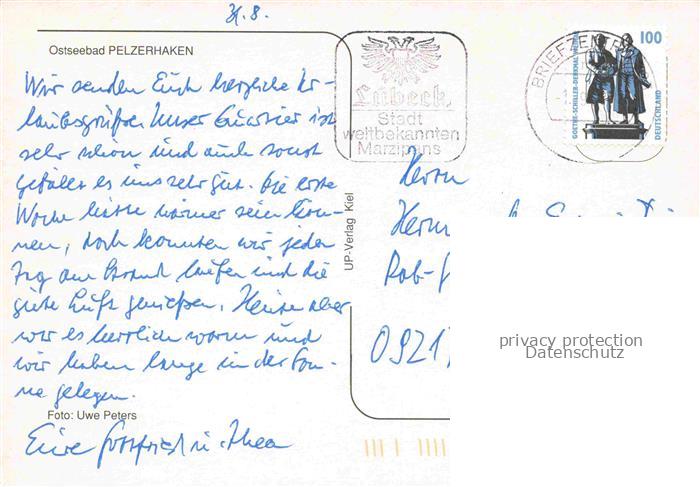 31.8.
Ostseebad PELZERHAKEN
Wir senden Euch herzliche Ur-
laubsgrüße. Unser Quartier ist
sehr schön und auch sonst
gefällt es uns sehr gut. Die erste
Woche hätte wärmer sein kön-
nen, doch konnten wir jeden
Tag am Strand laufen und die
gute Luft genießen. Heute aber
war es herrlich warm und
wir haben lange in der Son-
ne gelegen.
Foto: Uwe Peters
Eure Gottfried u. Thea
UP-Verlag Kiel
Lübeck
Stadt
weltbekannten
Marzipans
BRIEFZEN
GOETHE-SCHILLER-DENKMAL WEIMAR
100
DEUTSCHLAND
Herrn
Rob-
0921
privacy protection
Datenschutz